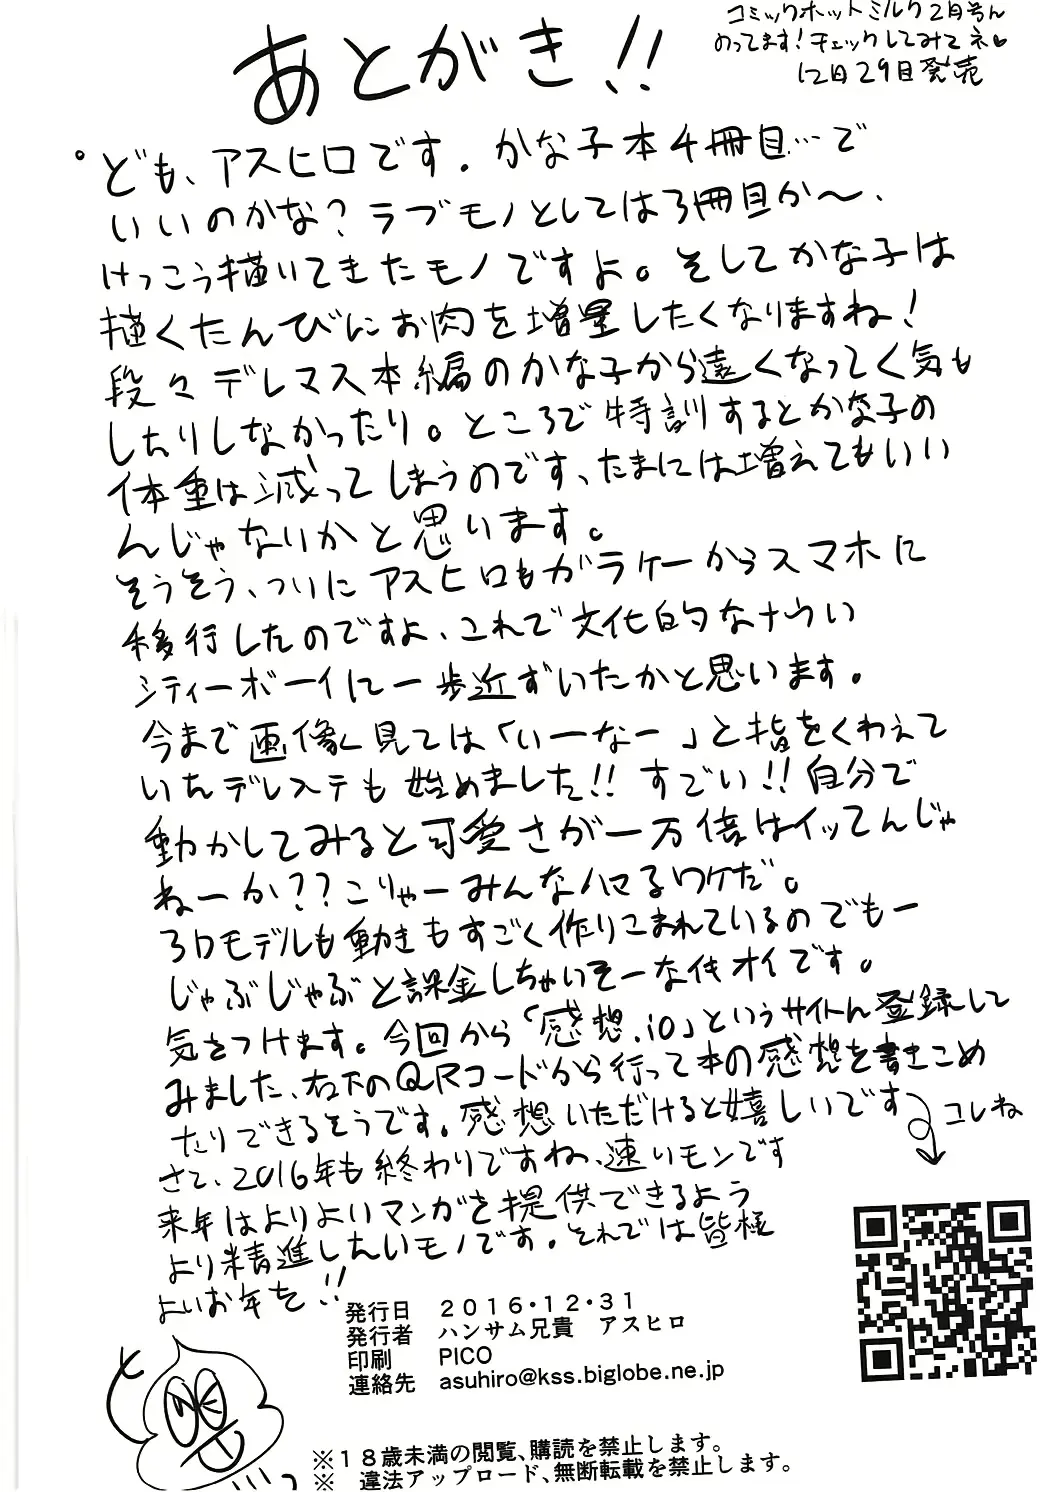 コミックホットミルク2月号ん
のってます!チェックしてみてネ♥
12日29日発売
あとがき!!
ども、アスヒロです。かな子本4冊目…で
いいのかな?ラブモノとしては3冊目か〜、
けっこう描いてきたモノですよ。そしてかな子は
描くたんびにお肉を増量したくなりますね!
段々デレマス本編のかな子から遠くなってく気も
したりしなかったり。ところで特訓するとかな子の
体重は減ってしまうのです、たまには増えてもいい
んじゃないかと思います。
そうそう、ついにアスヒロもガラケーからスマホに
移行したのですよ、これで文化的なナウい
シティーボーイに一歩近ずいたかと思います。
今まで画像見ては「いーなー」と指をくわえて
いたデレステも始めました!!すごい!!自分で
動かしてみると可愛さが一万倍はイッてんじゃ
ねーか??こりゃーみんなハマるワケだ。
3Dモデルも動きもすごく作りこまれているのでもー
じゃぶじゃぶと課金しちゃいそーなイキオイです。
気をつけます。今回から「感想.io」というサイトん登録して
みました、右下のQRコードから行って本の感想を書きこめ
たりできるそうです。感想いただけると嬉しいです
コレね
さて、2016年も終わりですね、速いモンです
来年はよりよいマンガを提供できるよう
より精進したいモノです。それでは皆様
よいお年を!!
発行日 2016・12・31
発行者 ハンサム兄貴 アスヒロ
印刷 PICO
連絡先 asuhiro@kss.biglobe.ne.jp
※18歳未満の閲覧、購読を禁止します。
※ 違法アップロード、無断転載を禁止します。